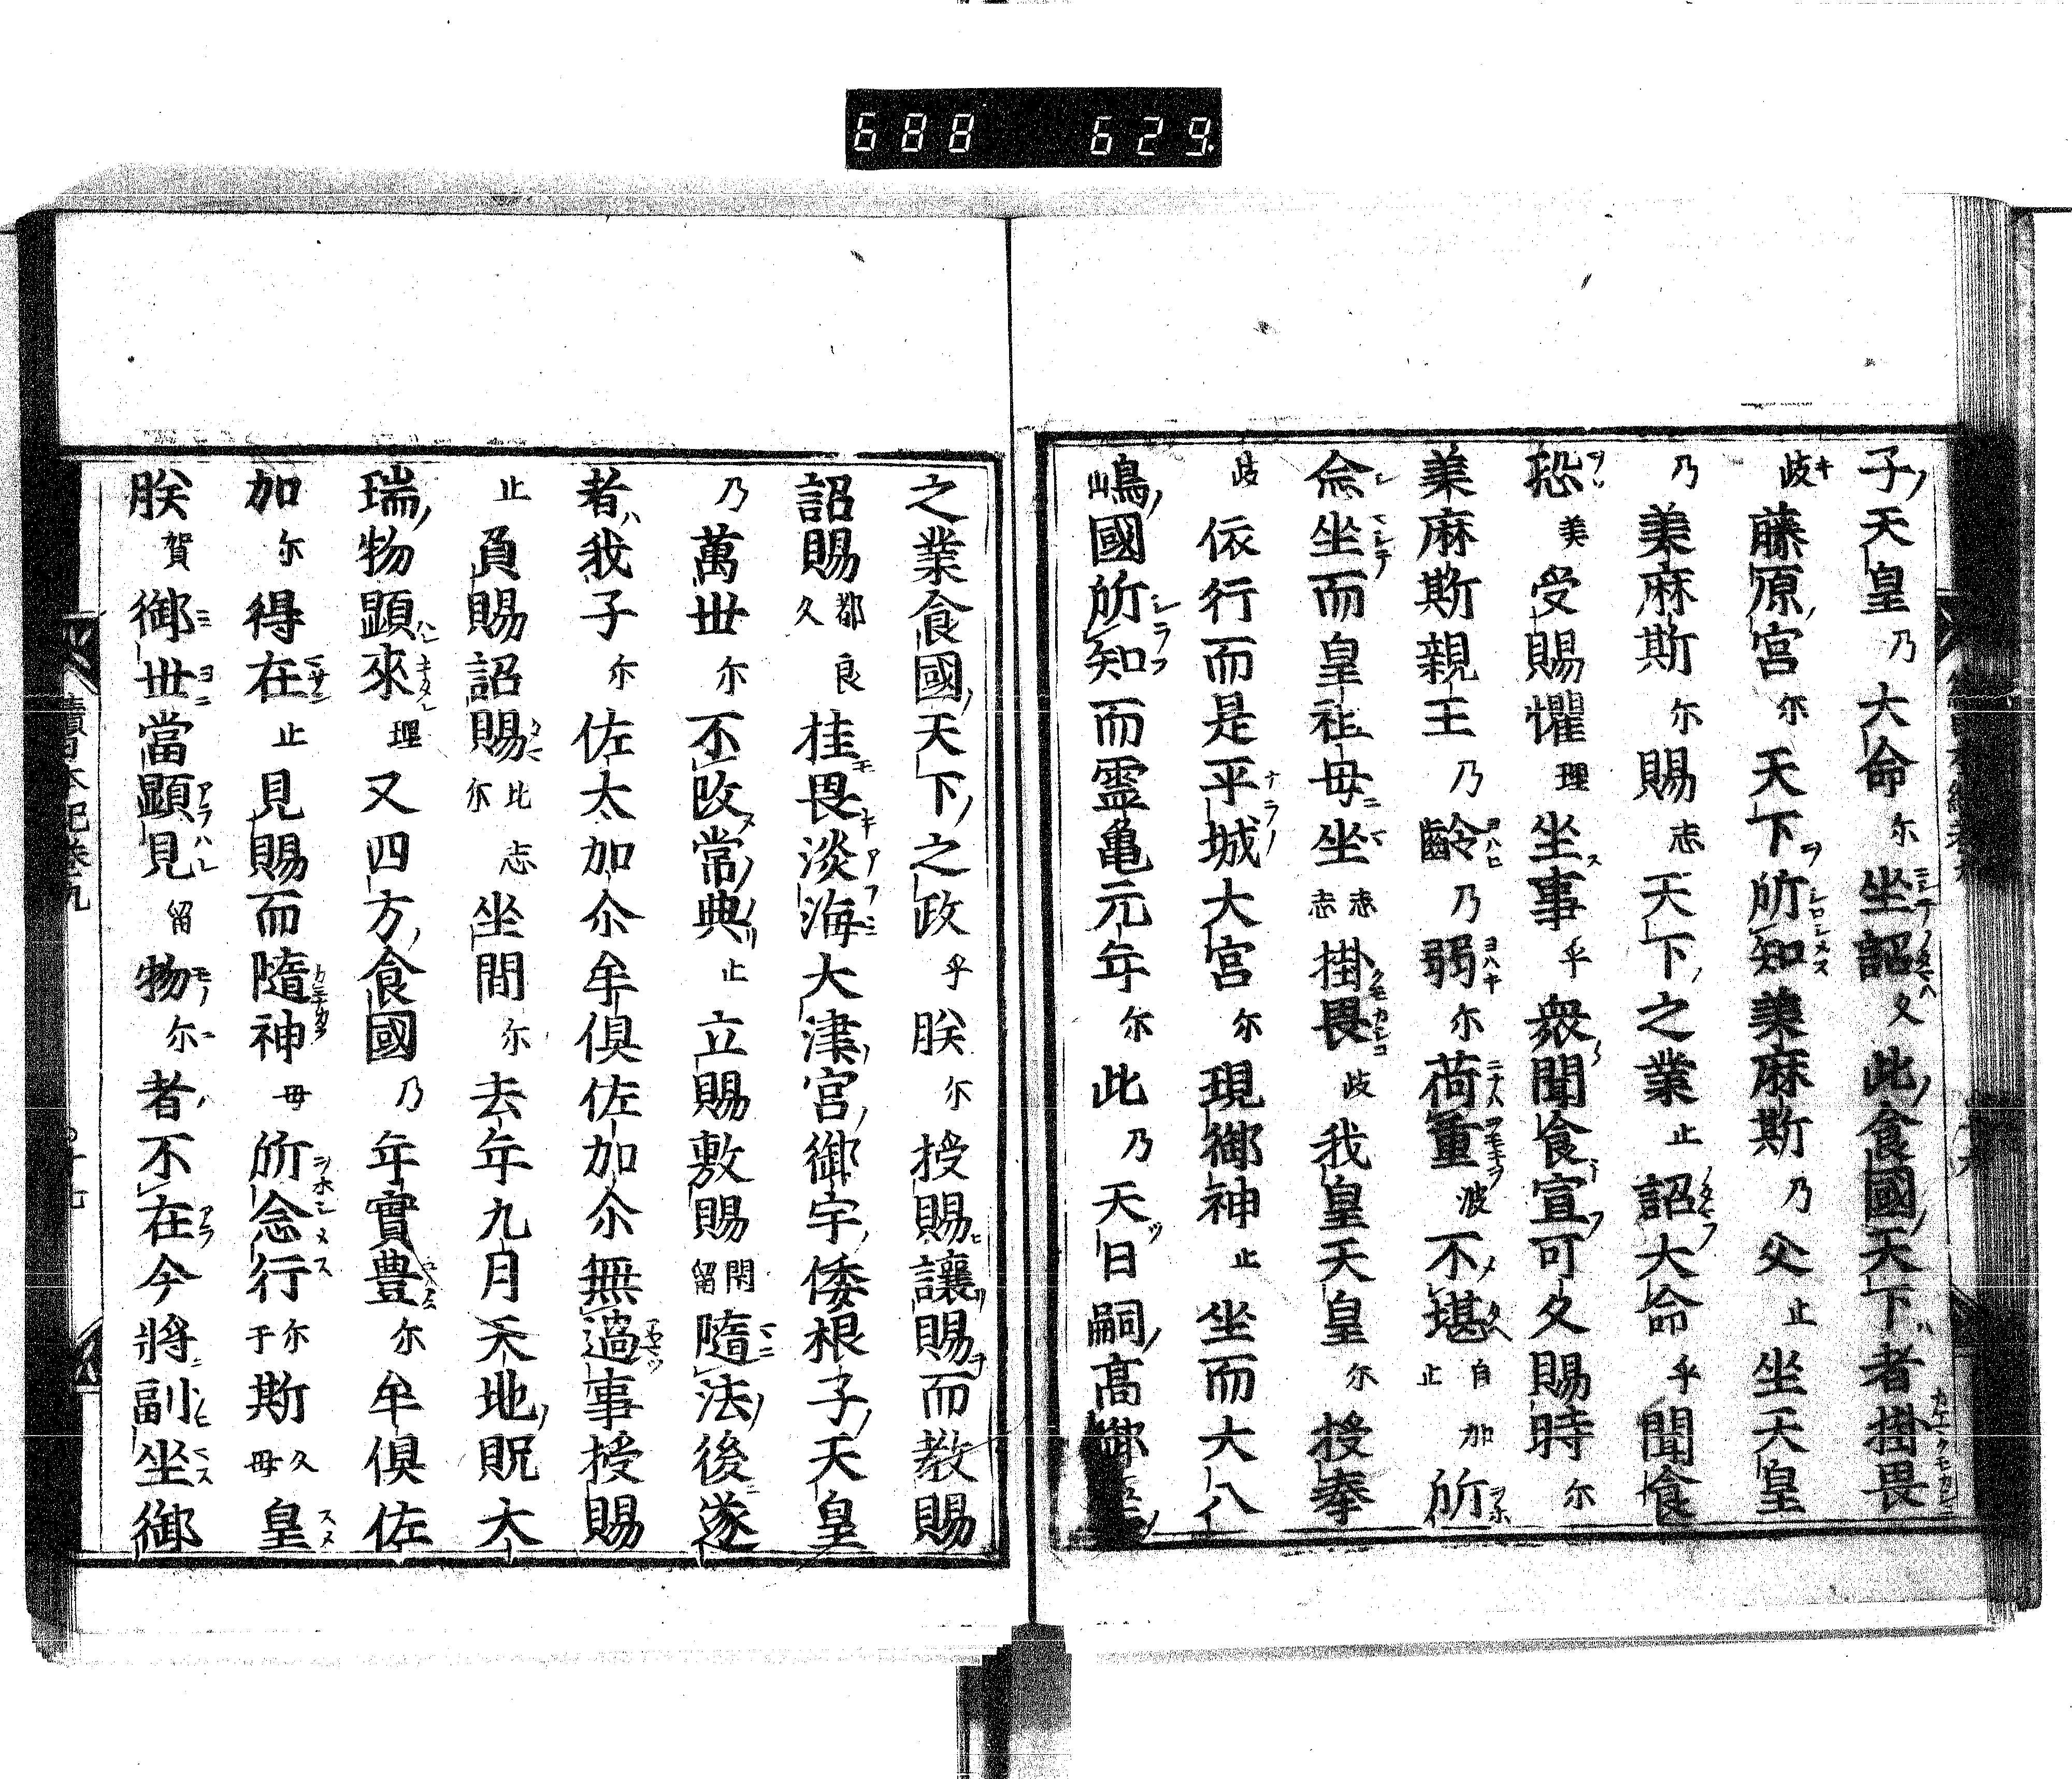 688 629
子天皇乃大命尓坐詔久此食國天下者掛畏
歧藤原宮尓天下所知美麻斯乃父止坐天皇
乃美麻斯尓賜志天下之業止詔大命乎聞食
恐美受賜懼理坐事乎衆聞食宣可久賜時尓
美麻斯親王乃齡乃弱尓荷重波不堪自止加所
念坐而皇祖母坐志志掛畏歧我皇天皇尓授奉
歧依行而是平城大宮尓現御神止坐而大八
嶋國所知而霊亀元年尓此乃天日嗣高御
之業食國天下之政乎朕尓授賜讓賜而教賜
詔賜都久良桂畏淡海大津宮御宇倭根子天皇
乃萬世尓不改常典止立賜敷賜閇留隨法後遂
者我子尓佐太加尒牟倶佐加尒無過事授賜
止負賜詔賜比尓志坐間尓去年九月天地貺大
瑞物顕來理又四方食國乃年實豊尓牟倶佐
加尓得在止見賜而隨神母所念行尓于斯久母皇
朕賀御世當顕見留物尓者不在今將副坐御
續日本紀巻九